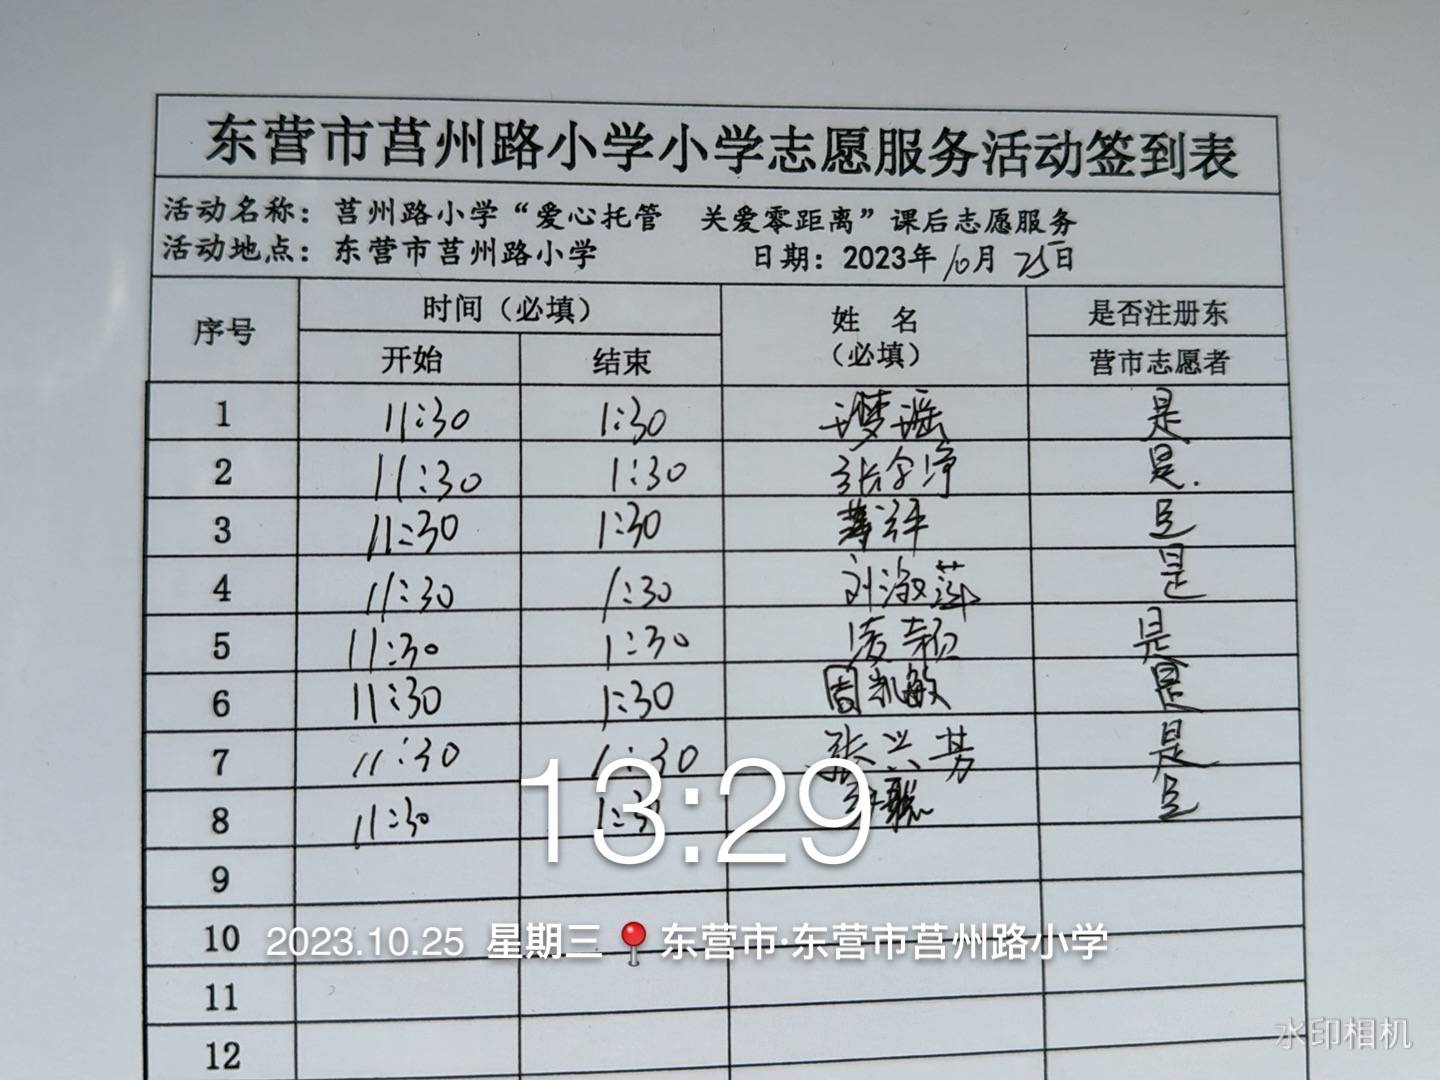 东营市莒州路小学小学志愿服务活动签到表
活动名称：莒州路小学“爱心托管 关爱零距离”课后志愿服务
活动地点：东营市莒州路小学 日期：2023年10月25日
序号 时间（必填） 姓 名（必填） 是否注册东营市志愿者
开始 结束
1 11:30 1:30 梦瑶 是
2 11:30 1:30 张 是.
3 11:30 1:30 是
4 11:30 1:30 刘淑萍 是
5 11:30 1:30 凌 是
6 11:30 1:30 周凯敏 是
7 11:30 1:30 张兴芳 是
8 11:30 1:30 聪 是
9
10
11
12
13:29
2023.10.25 星期三 东营市·东营市莒州路小学
水印相机